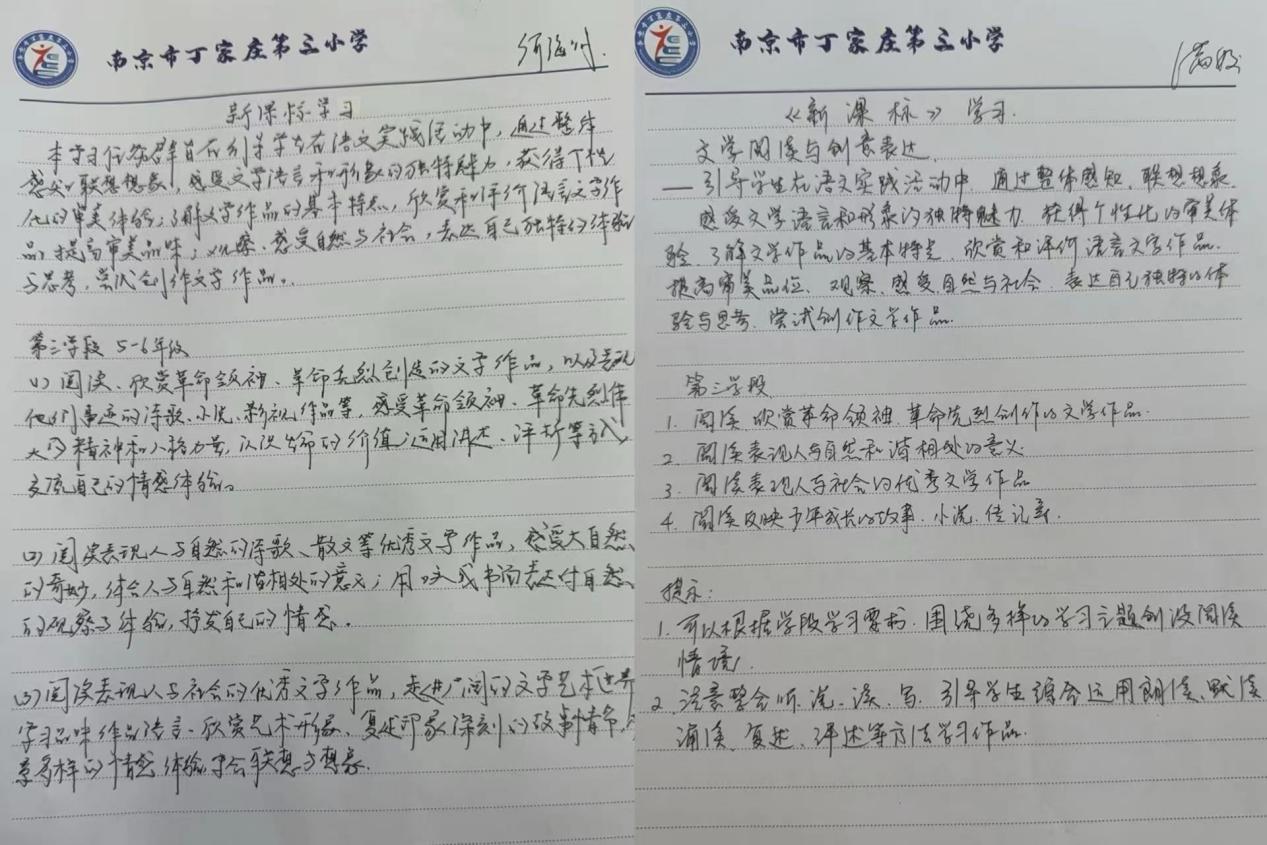 南京市丁家庄第三小学
新课标学习
本学习任务群旨在引导学生在语文实践活动中，通过整体
感知、联想想象，感受文学语言和形象的独特魅力，获得个性
化的审美体验；了解文学作品的基本特点，欣赏和评价语言文字作
品，提高审美品味；观察、感受自然与社会，表达自己独特的体验
与思考，尝试创作文学作品。
第三学段 5-6年级
(1) 阅读、欣赏革命领袖、革命先烈创造的文学作品，以及表现
他们事迹的诗歌、小说、影视作品等，感受革命领袖、革命先烈伟
大的精神和人格力量，认识生命的价值；运用讲述、评析等方式
交流自己的情感体验。
(2) 阅读表现人与自然的诗歌、散文等优秀文学作品，感受大自然
的奇妙，体会人与自然和谐相处的意义；用口头或书面表达对自然
的观察与体验，抒发自己的情感。
(3) 阅读表现人与社会的优秀文学作品，走进广阔的文学艺术世界
学习品味作品语言、欣赏艺术形象、复述印象深刻的故事情节，
多样的情感体验
联想与想象.
南京市丁家庄第三小学
《新课标》学习.
文学阅读与创意表达.
—— 引导学生在语文实践活动中，通过整体感知、联想想象，
感受文学语言和形象的独特魅力，获得个性化的审美体
验、了解文学作品的基本特点，欣赏和评价语言文字作品.
提高审美品位、观察、感受自然与社会，表达自己独特的体
验与思考、尝试创作文学作品.
第三学段.
1. 阅读、欣赏革命领袖、革命先烈创作的文学作品.
2. 阅读表现人与自然和谐相处的意义
3. 阅读表现人与社会的优秀文学作品
4. 阅读反映少年成长的故事、小说、传记等.
提示：
1. 可以根据学段学习要求，围绕多样的学习主题创设阅读
情境.
2. 注意整合听、说、读、写，引导学生综合运用朗读、默读
诵读、复述、评述等方法学习作品.